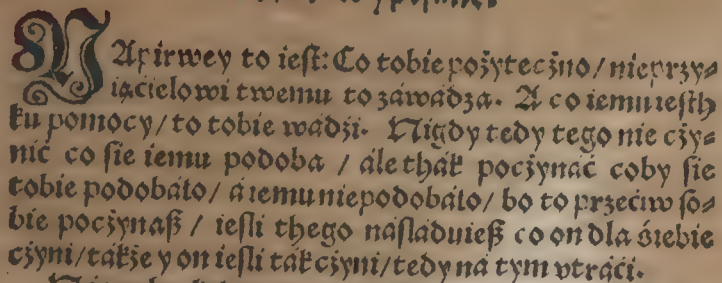 NApirwey to iest: Co tobie pożyteczno / nieprzy⸗
iącielowi twemu to záwadza. A co iemu iesth
ku pomocy / to tobie wádzi. Nigdy tedy tego nie czy⸗
nić co sie iemu podoba / ále thák poczynáć coby sie
tobie podobáło / á iemu niepodobáło / bo to przeciw so⸗
bie poczynaß / iesli thego násláduieß co on dla śiebie
czyni / tákże y on iesli ták czyni / tedy ná tym vtráći.